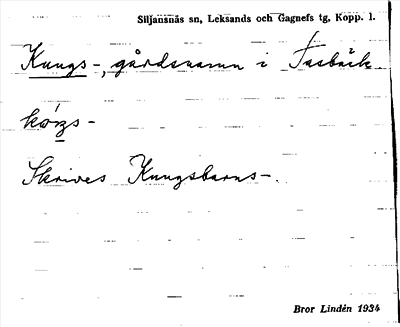 Siljansnäs sn, Leksands och Gagnefs tg, Kopp. l.
Kungs-, gårdsnamn i Tasbäck
Skrives Kungsbarns-.
Bror Lindén 1934